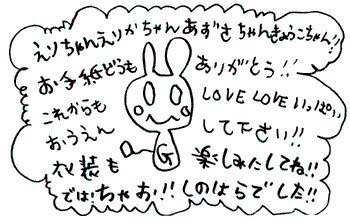 えりちゃんえりかちゃんあずさちゃんきょうこちゃん!!
お手紙どうも ありがとう!!
これからも LOVE LOVE いっぱい
おうえん して下さい!!
衣装も G 楽しみにしてね!!
では!ちゃお!!しのはらでした!!